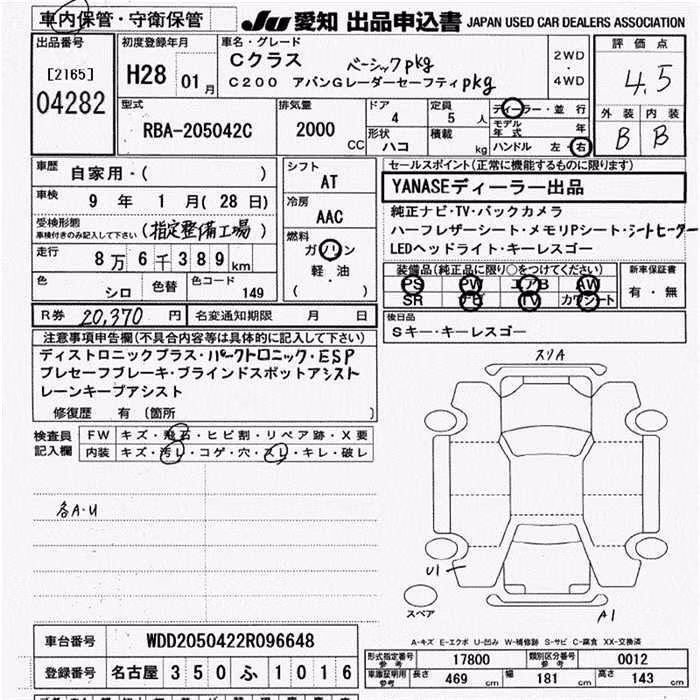 車内保管・守衛保管
JU 愛知 出品申込書 JAPAN USED CAR DEALERS ASSOCIATION
出品番号
[2165]
04282
初度登録年月
H28 01月
車名・グレード
Cクラス ベーシックpkg
C200 アバンGレーダーセーフティpkg
2WD
・
4WD
評価点
4.5
外装 内装
B B
型式
RBA-205042C
排気量
2000 CC
ドア
4
定員
5 人
形状
ハコ
積載
kg
ディーラー・並行
モデル年式 年
ハンドル 左・右
車歴
自家用・( )
車検
9年 1月(28日)
受検形態
車検付きのみ記入して下さい
(指定整備工場)
走行
8万6千389km
色
シロ
色替
色コード
149
シフト
AT
冷房
AAC
燃料
ガソリン
軽・油
( )
セールスポイント(正常に機能するものに限ります)
YANASEディーラー出品
純正ナビ・TV・バックカメラ
ハーフレザーシート・メモリPシート・シートヒーター
LEDヘッドライト・キーレスゴー
装備品(純正品に限り○をつけてください)
PS PW エアB AW
SR ナビ TV カワシート
新車保証書
有・無
R券 20,370 円
名変通知期限 月 日
後日品
Sキー・キーレスゴー
注意事項申告欄(不具合内容等は具体的に記入して下さい)
ディストロニックプラス・パークトロニック・ESP
プレセーフブレーキ・ブラインドスポットアシスト
レーンキープアシスト
修復歴 有 (箇所 )
検査員記入欄
FW キズ・飛石・ヒビ割・リペア跡・X要
内装 キズ・汚レ・コゲ・穴・スレ・キレ・破レ
各A・U
スリA
U1
A1
スペア
A-キズ E-エクボ U-凹み W-補修跡 S-サビ C-腐食 XX-交換済
車台番号 WDD2050422R096648
登録番号 名古屋 350 ふ 1016
形式指定番号
参考
17800
類別区分番号
参考
0012
車庫証明用
参考
長さ 469 cm 幅 181 cm 高さ 143 cm